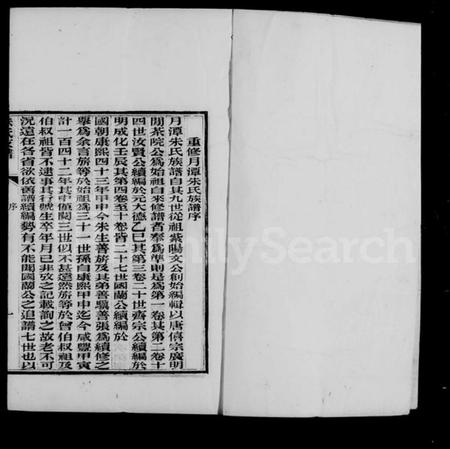 重修月潭朱氏族譜序
月潭朱氏族譜自其九世從祖紫陽文公創始編輯以唐僖宗廣明
間茶院公為始祖自來修譜者奉為準則是為第一卷其第二卷十
四世汝賢公續編於元大德乙巳其第三卷二十世齋宗公續編於
明成化壬辰其第四卷至十卷皆二十七世國蘭公續編於
國朝康熙四十三年甲申今朱生善旂及其弟善驥善張為續修之
舉為余言旂等於始祖為三十一世孫自康熙甲申迄今咸豐甲寅
計一百四十二年其中值閱三世似不甚遠然旂等於曾伯叔祖及
伯叔祖皆不逮事其行號生卒年月已非攷之記載詢之故老不可
況遠在各省欲依舊譜續編勢有不能聞國蘭公之追譜七世也以
序
FamilySearch